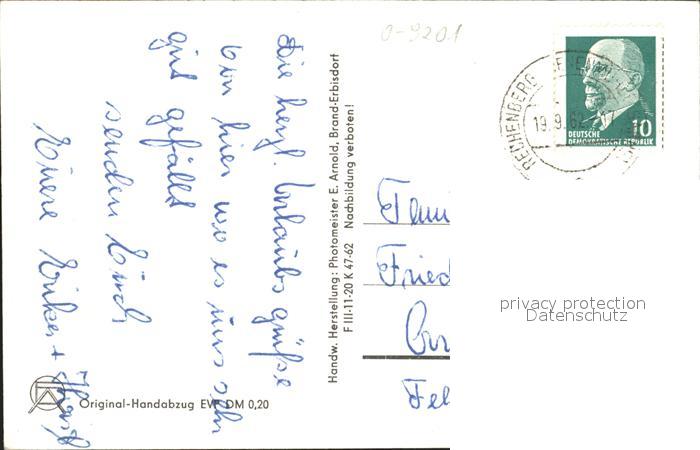 Die herzl. Urlaubsgrüße
von hier wo es uns sehr
gut gefällt
senden Euch
Eure Erika + Horst
Handw. Herstellung: Photomeister E. Arnold, Brand-Erbisdorf
F III-11-20 K 47-62 Nachbildung verboten!
Original-Handabzug EVP DM 0,20
0-9201
RECHENBERG
19.9.62
10
DEUTSCHE
DEMOKRATISCHE REPUBLIK
Fam
Fried
Fel
privacy protection
Datenschutz